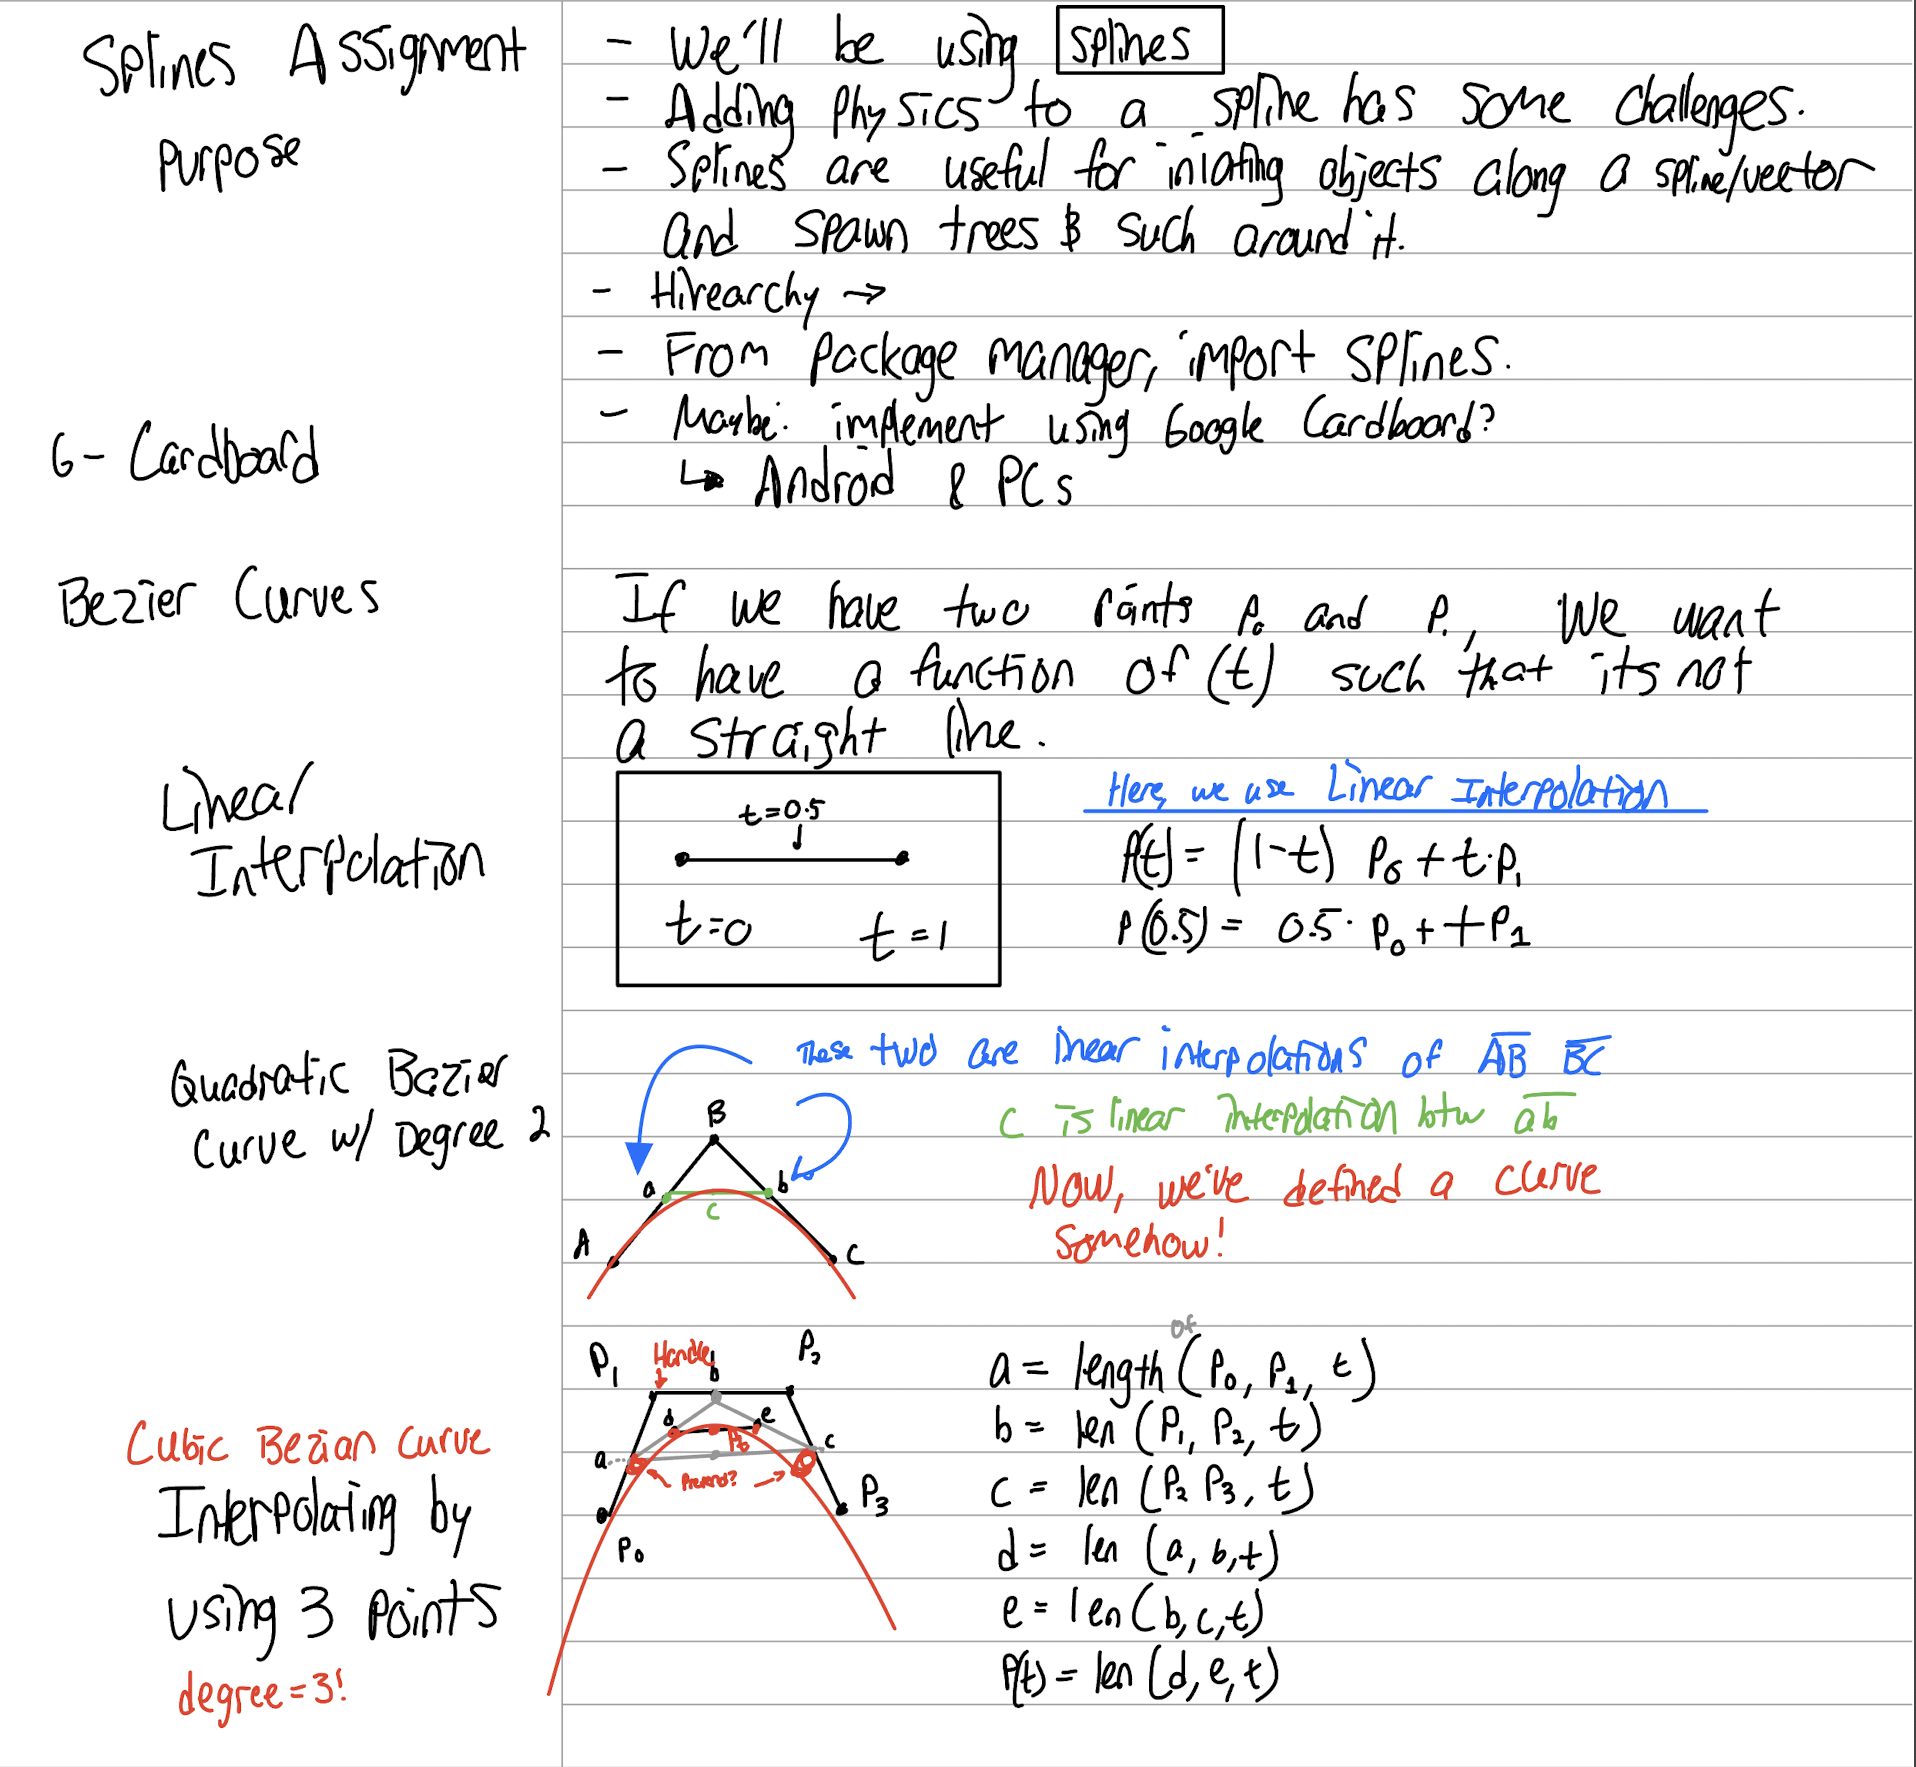 Splines Assignment
Purpose
- We'll be using splines
- Adding Physics to a spline has some challenges.
- Splines are useful for iniating objects along a spline/vector
and spawn trees & such around it.
- Hirearchy →
- From package manager, import splines.
G-Cardboard
- Maybe: implement using Google Cardboard?
↳ Android & PCs
Bezier Curves
If we have two points P₀ and P₁, We want
to have a function of (t) such that its not
a straight line.
Linear
Interpolation
t=0.5
t=0 t=1
Here, we use Linear Interpolation
P(t) = (1-t) P₀ + t·P₁
P(0.5) = 0.5· P₀ + +P₁
Quadratic Bezier
Curve w/ Degree 2
These two are linear interpolations of AB BC
C is linear interpolation btw ab
Now, we've defined a curve
somehow!
B
a b
c
A C
Cubic Bezian Curve
Interpolating by
using 3 points
degree=3!
P₁ Handle b P₂
d e
Pt
a c
P₃
P₀
of
a = length (P₀, P₁, t)
b = len (P₁, P₂, t)
c = len (P₂ P₃, t)
d = len (a, b, t)
e = len (b, c, t)
P(t) = len (d, e, t)